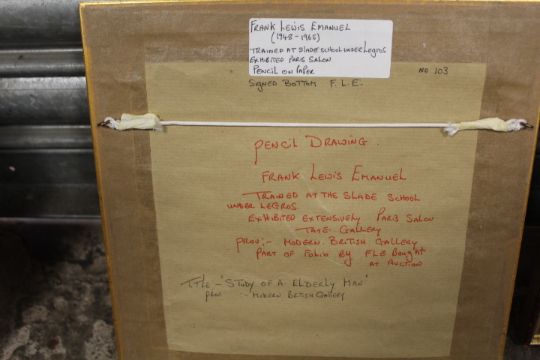 FRANK LEWIS EMANUEL
(1948-1965)
TRAINED AT SLADE SCHOOL UNDER LEGROS
EXHIBITED PARIS SALON
PENCIL ON PAPER
SIGNED BOTTOM F.L.E.
NO 103
PENCIL DRAWING.
FRANK LEWIS EMANUEL
TRAINED AT THE SLADE SCHOOL
UNDER LEGROS.
EXHIBITED EXTENSIVELY PARIS SALON
TATE GALLERY
PROV:- MODERN BRITISH GALLERY
PART OF FOLIO BY FLE BOUGHT
AT AUCTION
TITLE - 'STUDY OF A ELDERLY MAN'
PROV :- MODERN BRITISH GALLERY